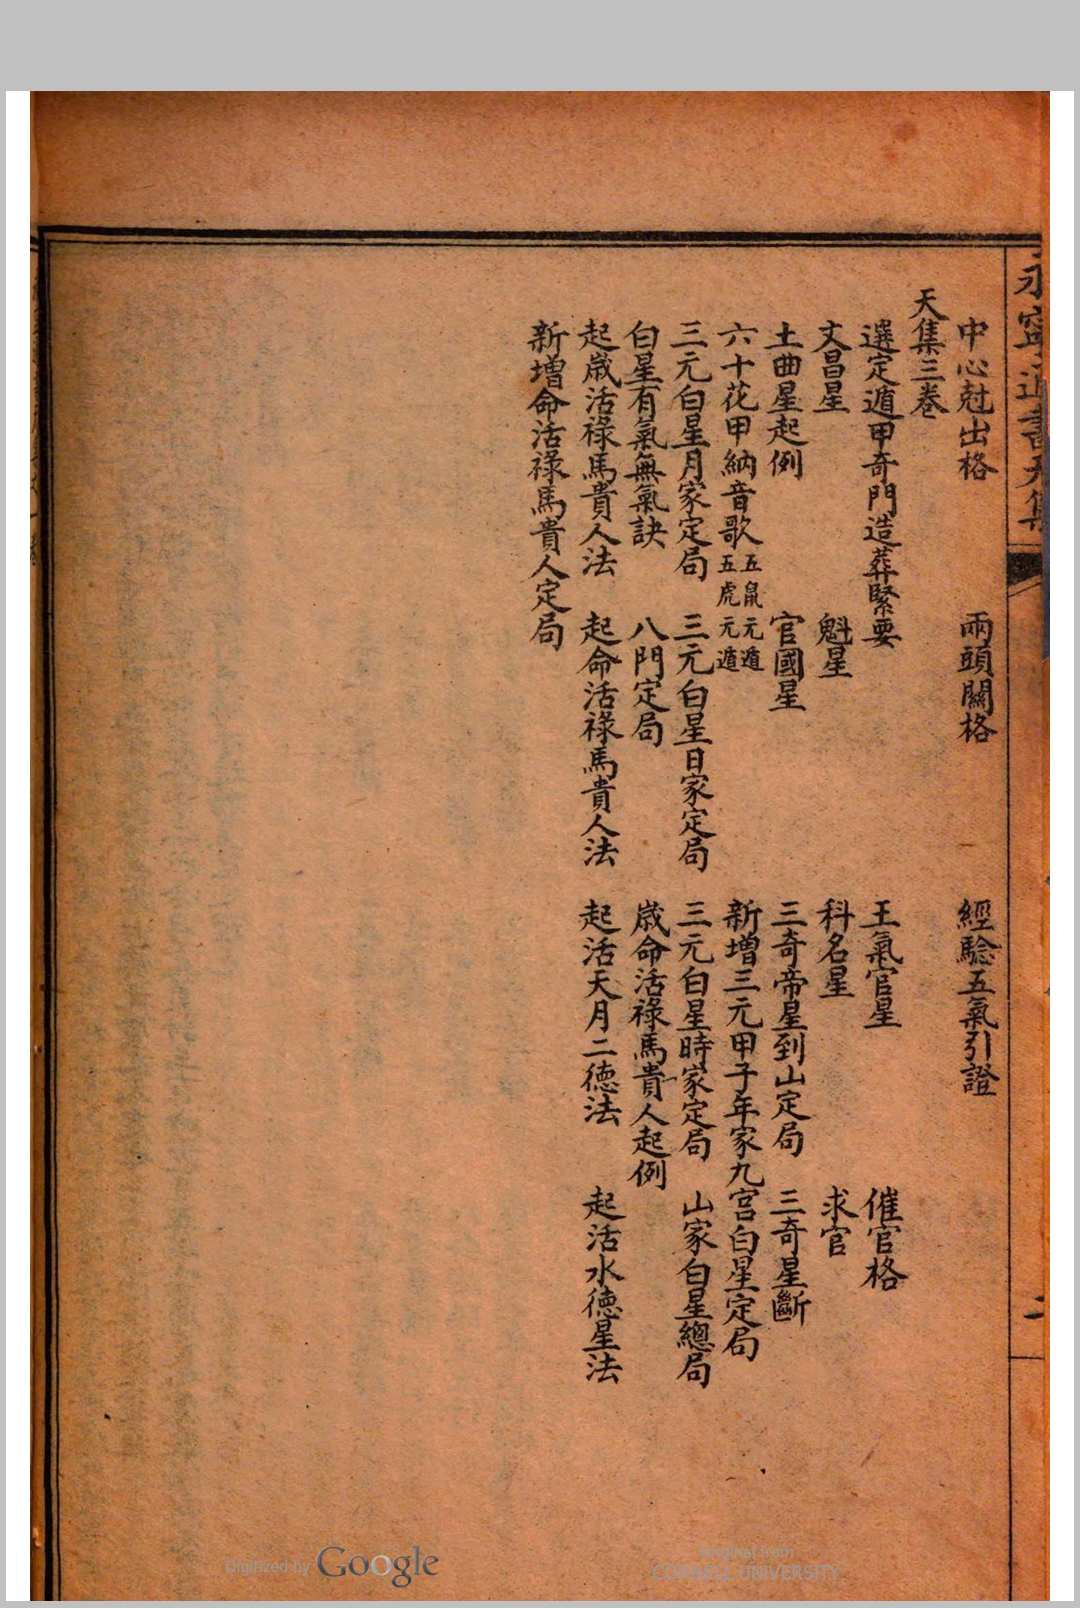 永寧通書天集
中心尅出格　兩頭關格　經驗五氣引證
天集三卷
選定遁甲奇門造葬緊要　王氣官星　催官格
文昌星　魁星　科名星　求官
土曲星起例　官國星　三奇帝星到山定局　三奇星斷
六十花甲納音歌 五鼠元遁 五虎元遁　新增三元甲子年家九宮白星定局
三元白星月家定局　三元白星日家定局　三元白星時家定局　山家白星總局
白星有氣無氣訣　八門定局　歲命活祿馬貴人起例
起歲活祿馬貴人法　起命活祿馬貴人法　起活天月二德法　起活水德星法
新增命活祿馬貴人定局
Digitized by Google
Original from
CORNELL UNIVERSITY